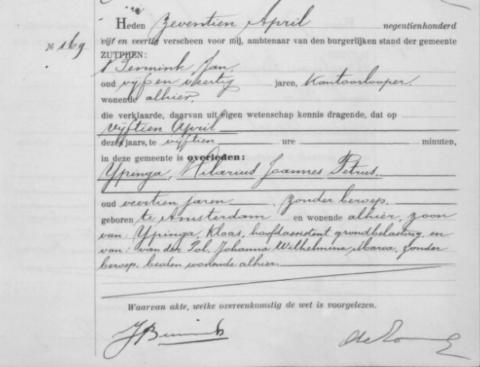 Heden zeventien April negentienhonderd
N 169 vijf en veertig verscheen voor mij, ambtenaar van den burgerlijken stand der gemeente
ZUTPHEN:
Jan,
oud vijf en veertig jaren, Kantoorlooper,
wonende alhier,
die verklaarde, daarvan uit eigen wetenschap kennis dragende, dat op
vijftien April
dezes jaars, te vijftien ure minuten,
in deze gemeente is overleden:
Ypinga, Hilarius Joannes Petrus
oud veertien jaren, zonder beroep,
geboren te Amsterdam en wonende alhier, zoon
van: Ypinga, Klaas, hoofdassistent grondbelasting, en
van: van der Pol, Johanna Wilhelmina Maria, zonder
beroep, beiden wonende alhier.
Waarvan akte, welke overeenkomstig de wet is voorgelezen.